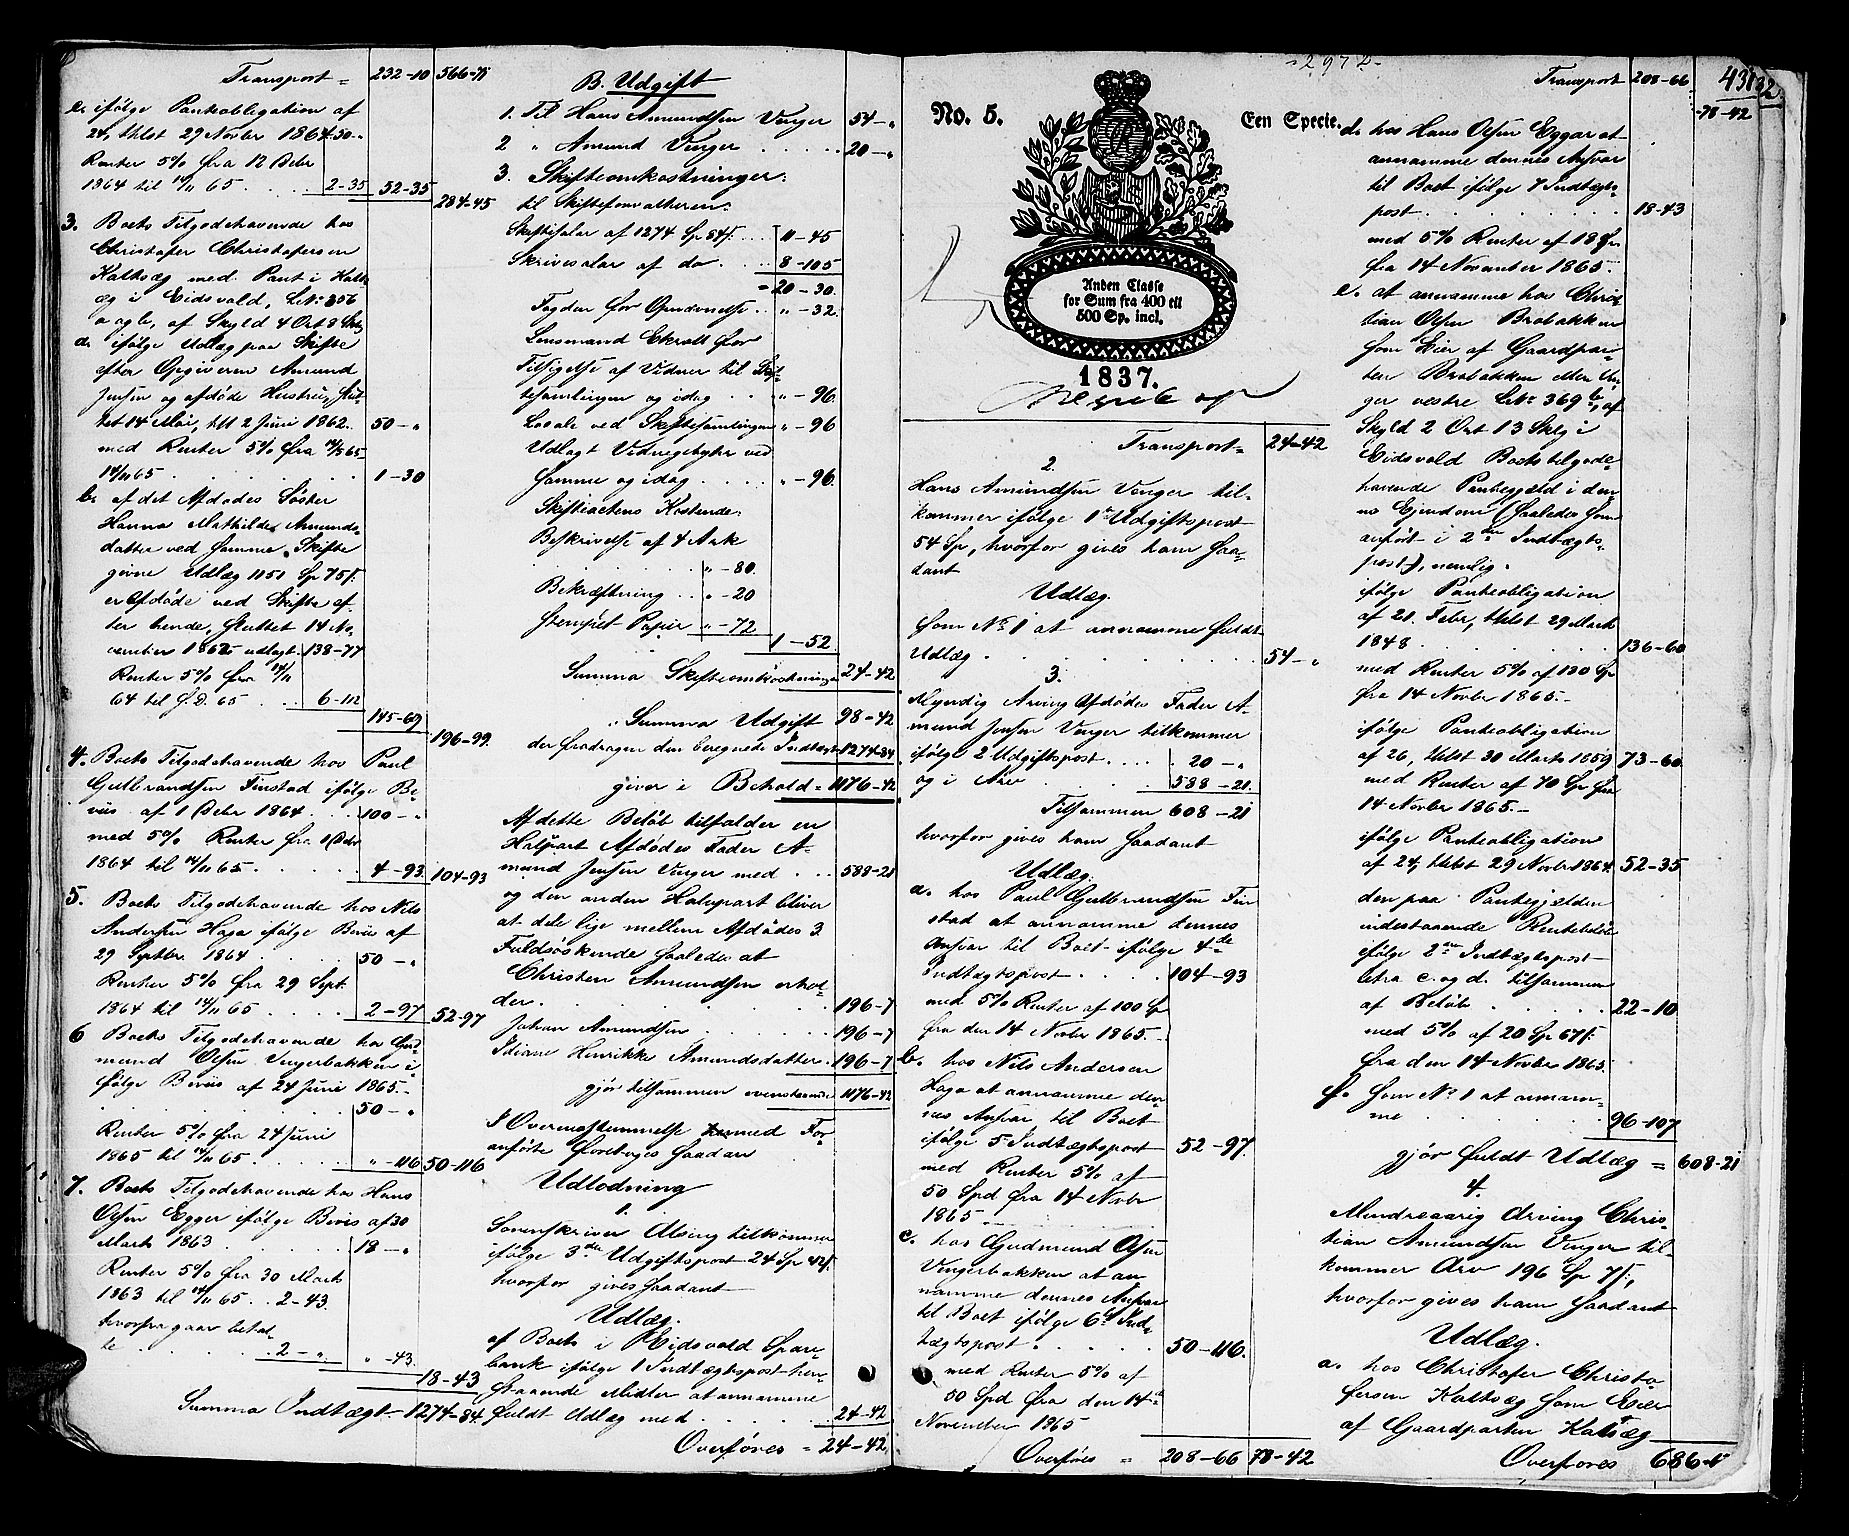 Transport = 232-10 566-71
c. ifølge Panteobligation af
24, thlst 29 Novbr 1864 50-"
Renter 5% fra 12 Debr
1864 til 14/11 65 . . . 2-35 52-35
284-45
3. Boets Tilgodehavende hos
Christofer Christofersen
Kaltsæg med Pant i Kalts-
æg i Eidsvold, LNr 356
a og b, af Skyld 4 Ort 8 Skg
a. ifølge Udlæg paa Skifte
efter Opgiveren Amund
Jensen og afdøde Hustru, slut-
tet 14 Mai, thl 2 Juni 1862. 50-"
med Renter 5% fra 14/5 65
14/11 65 . . . 1-30
b. af det Afdødes Søster
Hanna Mathilde Amunds-
datter ved samme Skifte
givne Udlæg 1151 Sp 75 s.
er Afdøde ved Skifte ef-
ter hende, sluttet 14 No-
vember 1862 udlagt 138-77
Renter 5% fra 14/11
64 til s. D. 65 . . . 6-112
145-69
196-99.
4. Boets Tilgodehavende hos Paul
Gulbrandsen Finstad ifølge Be-
viis af 1 Debr 1864 . . . 100-"
med 5% Renter fra 1 Debr
1864 til 14/11 65 . . . 4-93. 104-93
5. Boets Tilgodehavende hos Nils
Andersen Haga ifølge Beviis af
29 Septbr 1864 . . . 50-"
Renter 5% fra 29 Sept.
1864 til 14/11 65 . . . 2-97 52-97
6 Boets Tilgodehavende hos Gud-
mund Olsen Vingerbakken i-
følge Beviis af 24 Juni 1865.-
. . . 50-"
Renter 5% fra 24 Juni
1865 til 14/11 65 . . . "-116 50-116
7. Boets Tilgodehavende hos Hans
Olsen Egger ifølge Bevis af 30
Marts 1863 . . . 18-"
Renter 5% fra 30 Marts
1863 til 14/11 65 . . 2-43.
hvorfra gaar betal-
te . . . 2-". "-43.
18-43
Summa Indtægt - 1274-84
B. Udgift
1. Til Hans Amundsen Vinger 54-"
2 " Amund Vinger . . . 20-"
3. Skifteomkostninger:
til Skifteforvalteren:
Skiftesalar af 1274 Sp 84 s. . . 11-45
Skrivesalar af do . . . 8-105
= 20-30.
Fogden for Opnævnelse . . "-32.
Lensmand Ekroll for
Tilsigelse af Vidner til Skif-
tesamlingen og idag . . "-96.
Locale ved Skiftesamlingen "-96
Udlagt Vidnegebyhr ved
samme og idag . . . "-96.
Skifteactens Kostende:
Beskrivelse af 4 Ark
. . . "-80.
Bekræftning . . "-20
Stemplet Papir "-72
1-52.
Summa Skifteomkostninger 24-42
Summa Udgift 98-42
der fradragen den beregnede Indtægt 1274-84
giver i Behold = 1176-42
Af dette Beløb tilfalder en
Halvpart Afdødes Fader A-
mund Jensen Vinger med . . . 588-21
og den anden Halvpart bliver
at dele lige mellem Afdødes 3
Fuldsøskende saaledes at
Christen Amundsen erhol-
der . . . 196-7
Johan Amundsen . . . 196-7
Idiane Henrikke Amundsdatter . 196-7
gjør tilsammen ovenstaaende 1176-42
I Overensstemmelse hermed For-
anførte foretoges saadan
Udlodning
1.
Sorenskriver Alsing tilkommer
ifølge 3die Udgiftspost 24 Sp 42 s.
hvorfor gives saadant
Udlæg.
af Boets i Eidsvold Spare-
bank ifølge 1 Indtægtspost hen-
staaende Midler at annamme
fuldt Udlæg med . . . 24-42
Overføres = 24-42
-2972-
No. 5. Een Specie.
Anden Classe
for Sum fra 400 til
500 Sp. incl.
1837.
Transport = 24-42
2.
Hans Amundsen Vinger til-
kommer ifølge 1ste Udgiftspost
54 Sp, hvorfor gives ham saa-
dant
Udlæg.
som No 1 at annamme fuldt
Udlæg . . . 54-"
3.
Myndig Arving Afdødes Fader A-
mund Jensen Vinger tilkommer
ifølge 2 Udgiftspost . . . 20-"
og i Arv . . . 588-21.
Tilsammen 608-21
hvorfor gives ham saadant
Udlæg.
a. hos Paul Gulbrandsen Fin-
stad at annamme dennes
Ansvar til Boet ifølge 4de
Indtægtspost . . . 104-93
med 5% Renter af 100 Sp
fra den 14 Novbr 1865.-
b. hos Nils Andersen
Haga at annamme den-
nes Ansvar til Boet
ifølge 5 Indtægtspost 52-97.
med Renter 5% af
50 Spd fra 14 Novbr
1865.
c. hos Gudmund Olsen
Vingerbakken at an-
namme dennes Ansvar
til Boet ifølge 6te Ind-
tægtspost . . . 50-116.
med Renter 5% af
50 Spd fra den 14de
November 1865
Overføres = 208-66 78-42
Transport 208-66 431
432.
-78-42
d. hos Hans Olsen Eggar at
annamme dennes Ansvar
til Boet ifølge 7 Indtægts-
post . . . 18-43
med 5% Renter af 18 Sp
fra 14 November 1865.
e. at annamme hos Chris-
tian Olsen Brobakken
som Eier af Gaardpar-
ten Brobakken eller Vin-
ger vestre LNr 369 b, af
Skyld 2 Ort 13 Skg i
Eidsvold Boets tilgode-
havende Pantegjeld i den-
ne Ejendom (saaledes som
anført i 2den Indtægts-
post), nemlig.
ifølge Panteobligation
af 21. Febr, thlst 29 Marts
1848 . . . 136-60
med Renter 5% af 130 Sp
fra 14 Novbr 1865.-
ifølge Panteobligation
af 26, thlst 30 Marts 1859 73-60
med Renter af 70 Sp fra
14 Novbr 1865.-
ifølge Panteobligation
af 24, thlst 29 Novbr 1864. 52-35
den paa Pantegjelden
indestaaende Rentebeløb
ifølge 2den Indtægtspost
litra c. og d. tilsammen
af Beløb . . . 22-10
med 5% af 20 Sp 67 s.
fra den 14 Novbr 1865.
f. som No 1 at annam-
me . . . 96-107
gjør fuldt Udlæg = 608-21
4.
Mindreaarig Arving Chris-
tian Amundsen Vinger til-
kommer Arv 196 Sp 7 s.,
hvorfor gives ham saadant
Udlæg.
a. hos Christofer Christo-
fersen Kaltsæg som Eier
af Gaardparten Kaltsæg
Overføres 686-63